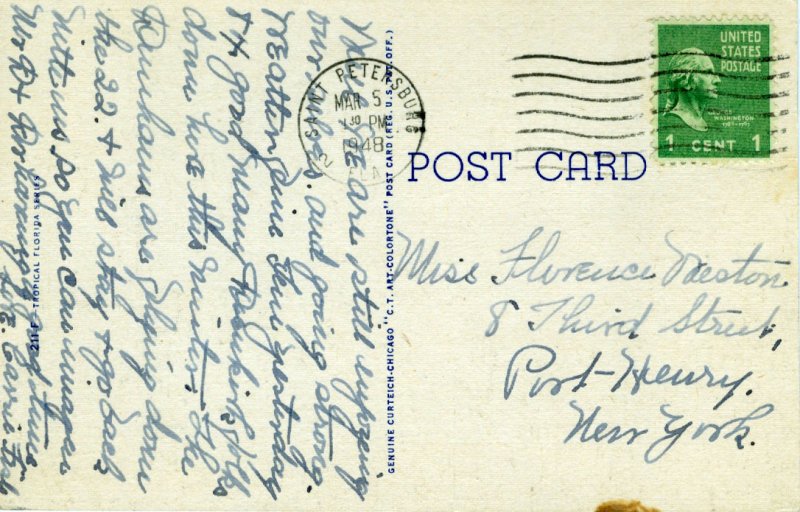 We are still enjoying
ourselves and going strong.
Weather fine here yesterday
+ A good many folks
down here this winter. The
are flying down
the 22. + will stay + go back
with us. So you can
Love. Carrie
211-F—TROPICAL FLORIDA SERIES
GENUINE CURTEICH-CHICAGO "C.T. ART-COLORTONE" POST CARD (REG. U.S. PAT. OFF.)
SAINT PETERSBURG
MAR 5
130 PM
1948
FLA
2
POST CARD
UNITED
STATES
POSTAGE
WASHINGTON
1 CENT 1
Miss Florence Preston
8 Third Street,
Port-Henry,
New York.